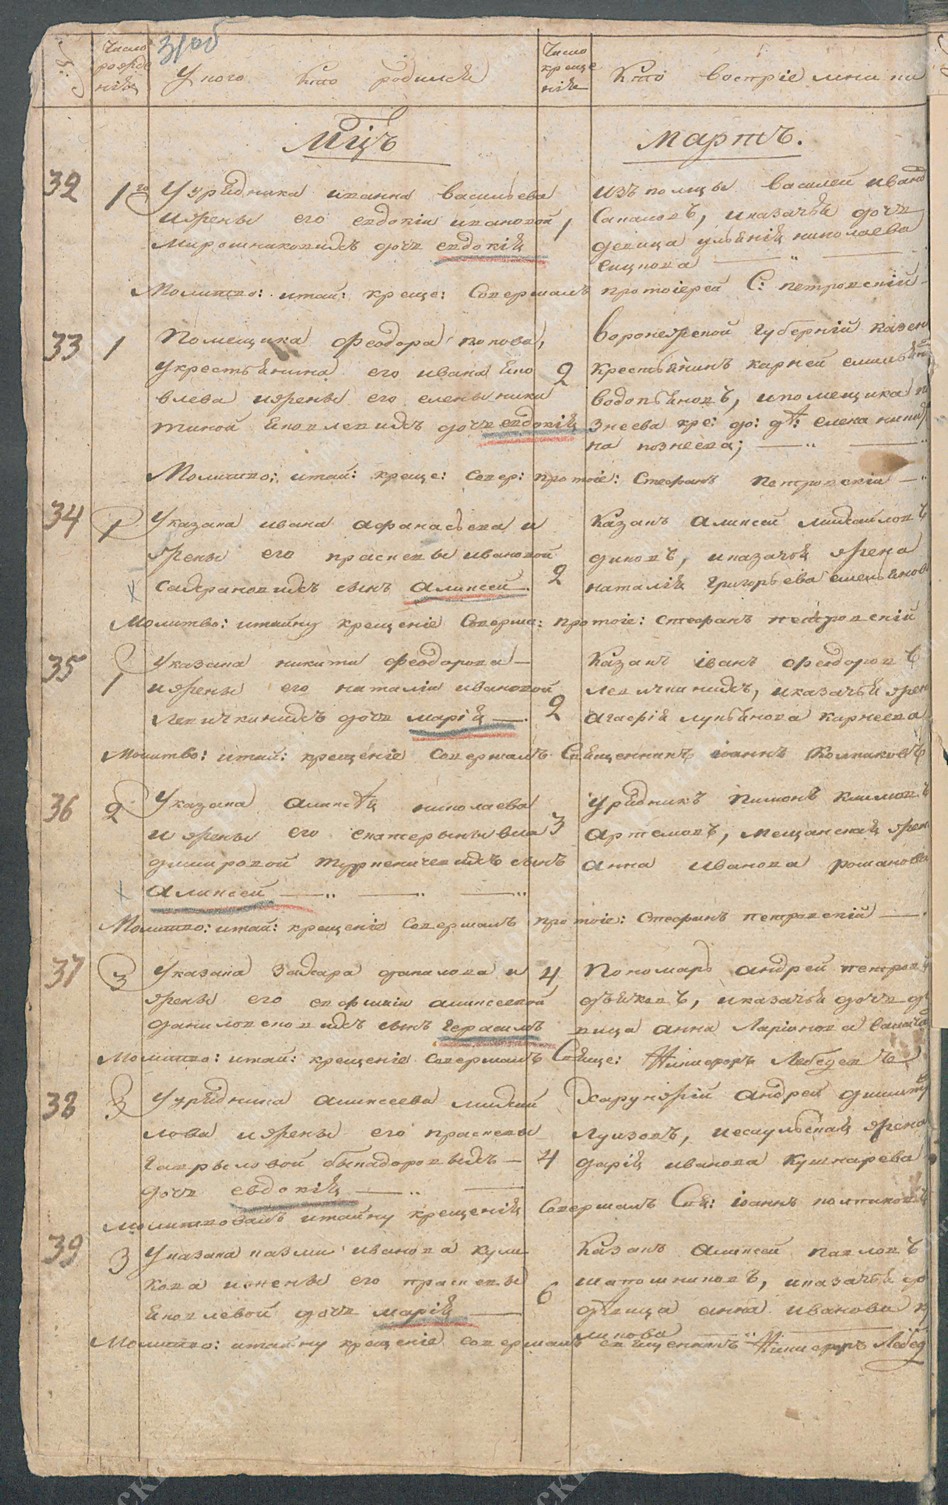 31об
Число рожденія
У кого кто родился
Число крещенія
Кто воспріемники
Мцъ
Мартъ.
32
1го
Урядника ивана васильева
ижены его евдокіи ивановой
Мирошниковыхъ дочь евдокія
1
василей
Сапаловъ, иказачья дочь
девица ульянія николаева
Молитво: итай: креще: Совершалъ протоіерей С: петровскій
33
1
Помещика феодора попова,
укрестьянина его ивана Яко
влева ижены его елены ники
тиной Яковлевыхъ дочь евдокія
2
Воронежской Губерніи казен
Крестьянинъ карней емилья
водопьяновъ, ипомещика по
знеева кре: до: дѣ: елена ники
на познеева;
Молитво: итай: креще: Совер: протоіе: Стефанъ Петровскій
34
1
Указака ивана афанасьева и
жены его прасковьи ивановой
сынъ Аликсей
2
Казакъ Аликсей михайловъ
диковъ, иказачья жена
наталія Григорьева емельянова
Молитво: итайну крещеніе Соверша: протоіе: стефанъ петровскій
35
1
Указака никиты феодорова
ижены его наталіи ивановой
Левичкиныхъ дочь марія
2
Казакъ іванъ феодоровъ
Левичкинъ, иказачья жен
агафія лукьянова карнеева
Молитво: итай: крещеніе Совершалъ Священникъ іоаннъ Колпиковъ
36
2
Указака Аликсѣя николаева
ижены его екатерины вла
димировой Турненичевыхъ сынъ
Аликсей
3
Урядникъ Пимонъ Климовъ
Артемовъ, мещанская жен
Анна Иванова романова
Молитво: итай: крещеніе Совершалъ протоіе: Стефанъ петровскій
37
3
Указака Захара данилова и
жены его евфиміи аликсеевой
сынъ Герасимъ
4
Пономарь Андрей петров
дьяковъ, иказачья дочь де
вица анна Ларіонова
Молитво: итай: крещеніе Совершалъ Свяще: Никифоръ Лебедевъ
38
3
Урядника аликсеева михай
лова ижены его прасковьи
Гаврыловой
дочь евдокія
4
Харунжій Андрей дмит
Лугзовъ, иесаульская жена
дарія иванова кушнарева
Молитвовалъ итайну крещенія Совершалъ Свя: іоаннъ колпиковъ
39
3
Указака казми иванова кули
кова ижены его прасковьи
Яковлевой дочь марія
6
Казакъ Аликсей павловъ
шапошниковъ, иказачья до
дѣвица анна иванова к
ликова
Молитво: итайну крещеніе совершалъ священникъ Никифоръ Лебед